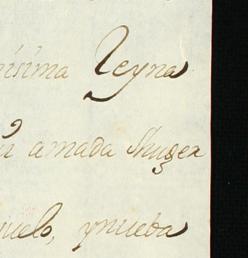 ísima Reyna
i amada Muger
uelo, ynueba